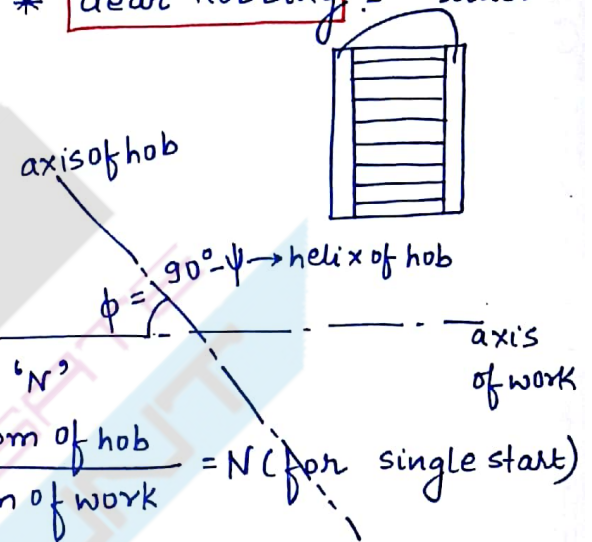 * Gear Hobbing :-
axis of hob
ϕ = 90°-ψ → helix of hob
axis
of work
'N'
of hob
of work = N (for single start)